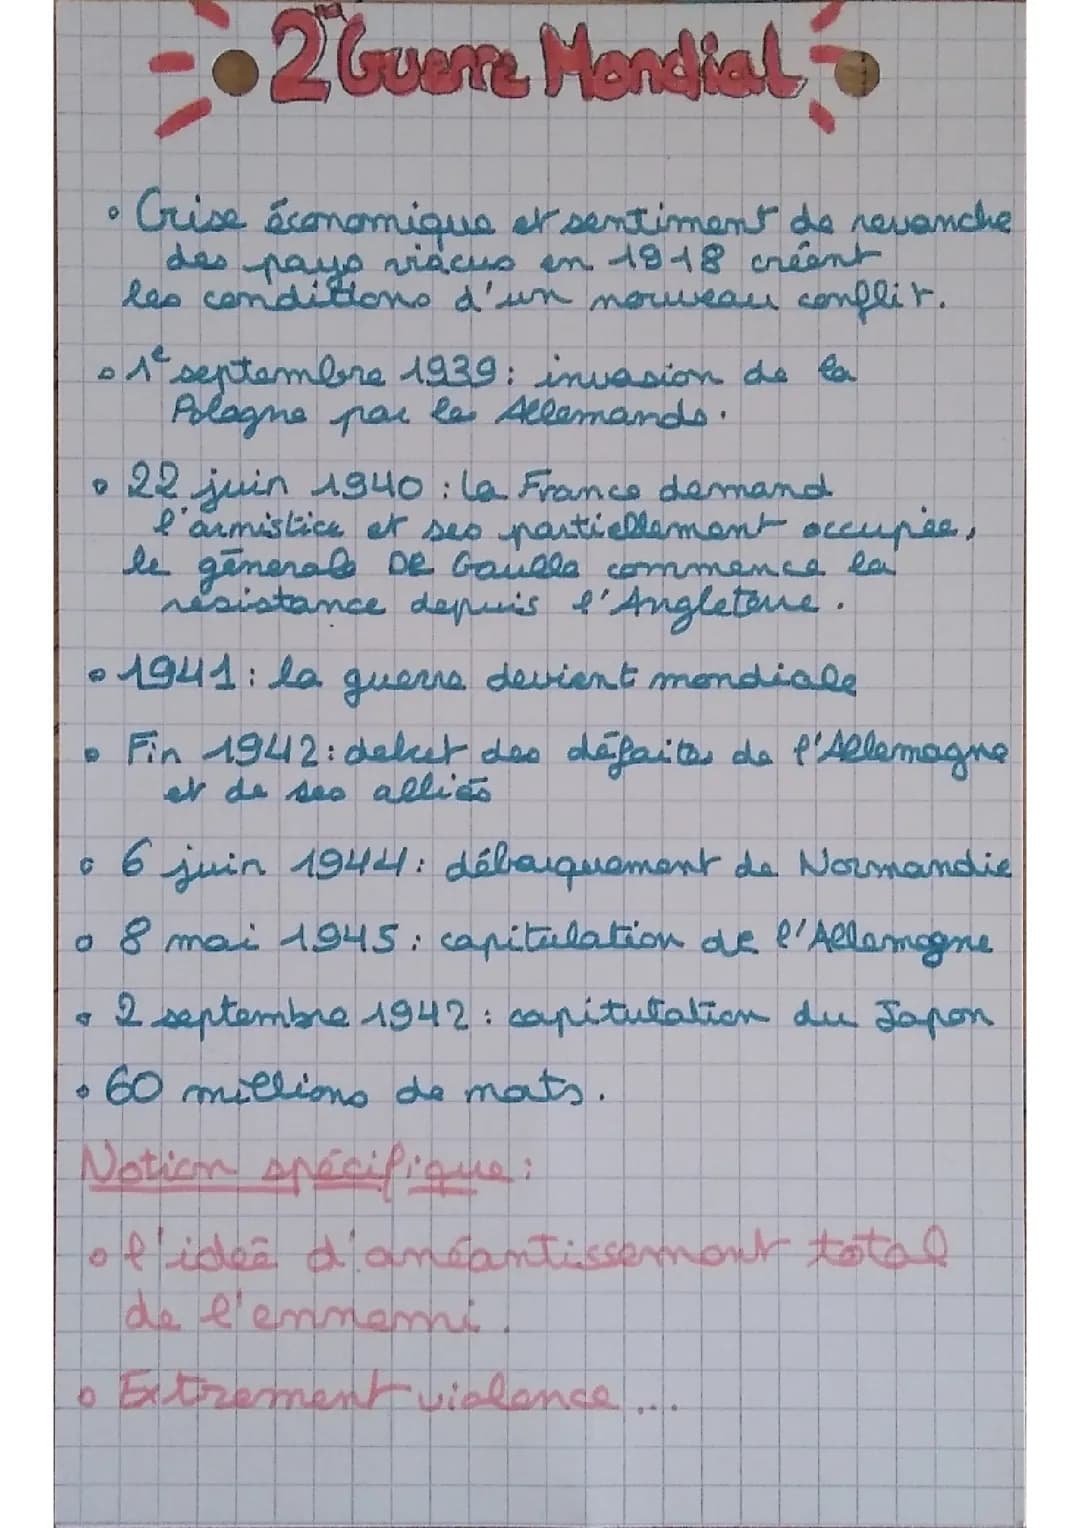 2ᵐ Guerre Mondial
• Crise économique et sentiment de revanche
des pays viacus en 1918 créent
les conditions d'un nouveau conflit.
• 1ᵉ septembre 1939: invasion de la
Pologne par les Allemands.
• 22 juin 1940 : la France demand
l'armistice et ses partiellement occupée,
le générale DE Gaulle commence la
résistance depuis l'Angleterre.
• 1941: la guerre devient mondiale
• Fin 1942: debut des défaites de l'Allemagne
et de ses alliés
• 6 juin 1944: débarquement de Normandie
• 8 mai 1945: capitulation de l'Allemagne
• 2 septembre 1942: capitulation du Japon
• 60 millions de mots.
Notion spécifique:
• l'ideé d'anéantissement total
de l'ennemi.
• Extrement violence...